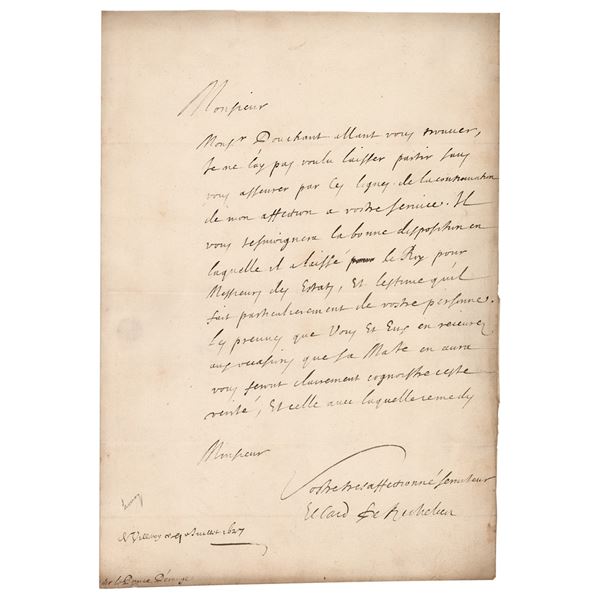 Monsieur
Monsr Douchant allant vous trouver,
Je ne l'ay pas voulu laisser partir sans
vous asseurer par ces lignes de la continuation
de mon affection a vostre service. Il
vous tesmoignera la bonne disposition en
laquelle il a laissé le Roy pour
Messieurs des Estats, Et l'estime qu'il
fait particulierement de vostre personne.
Les preuves que Vous Et Eux en recevrez
aux occasions que sa Maté en aura
vous feront clairement cognoistre ceste
verité, Et celle avec laquelle je me dis
Monsieur
Vostre tres affectionné serviteur
Le Card de Richelieu
A Villeroy ce Juillet 1627
Mr le Prince D'orenge